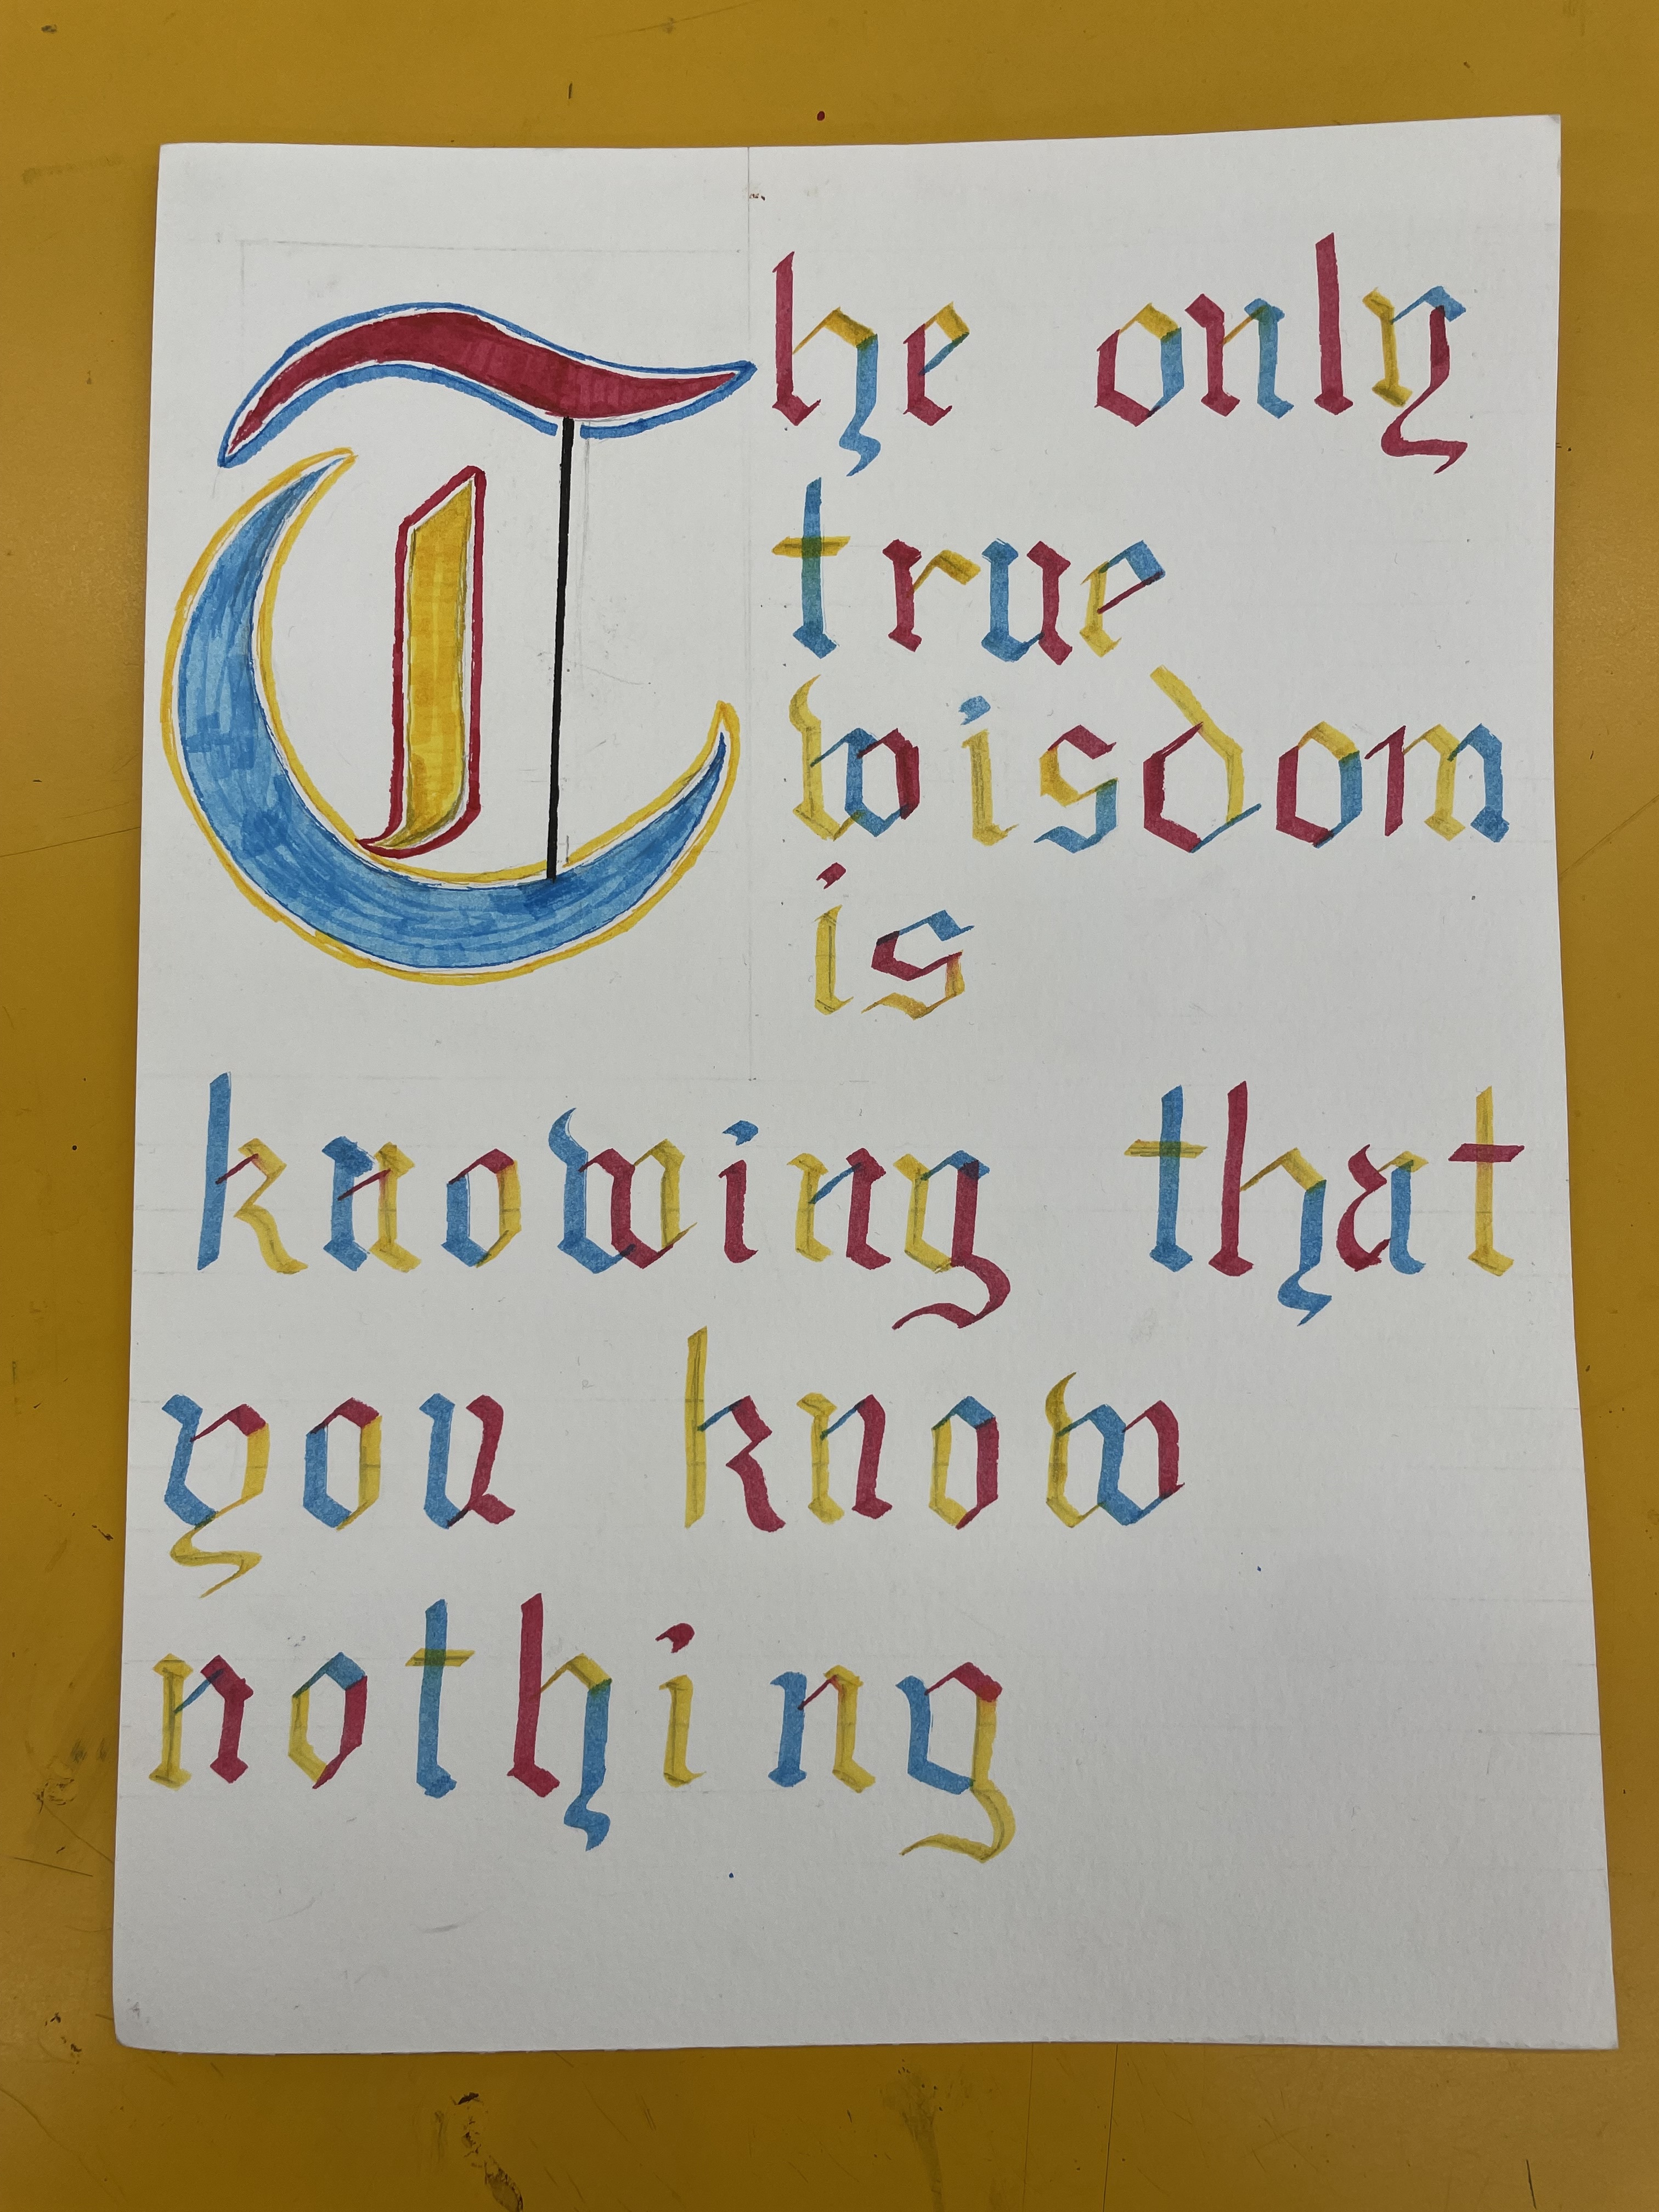 The only
true
wisdom
is
knowing that
you know
nothing